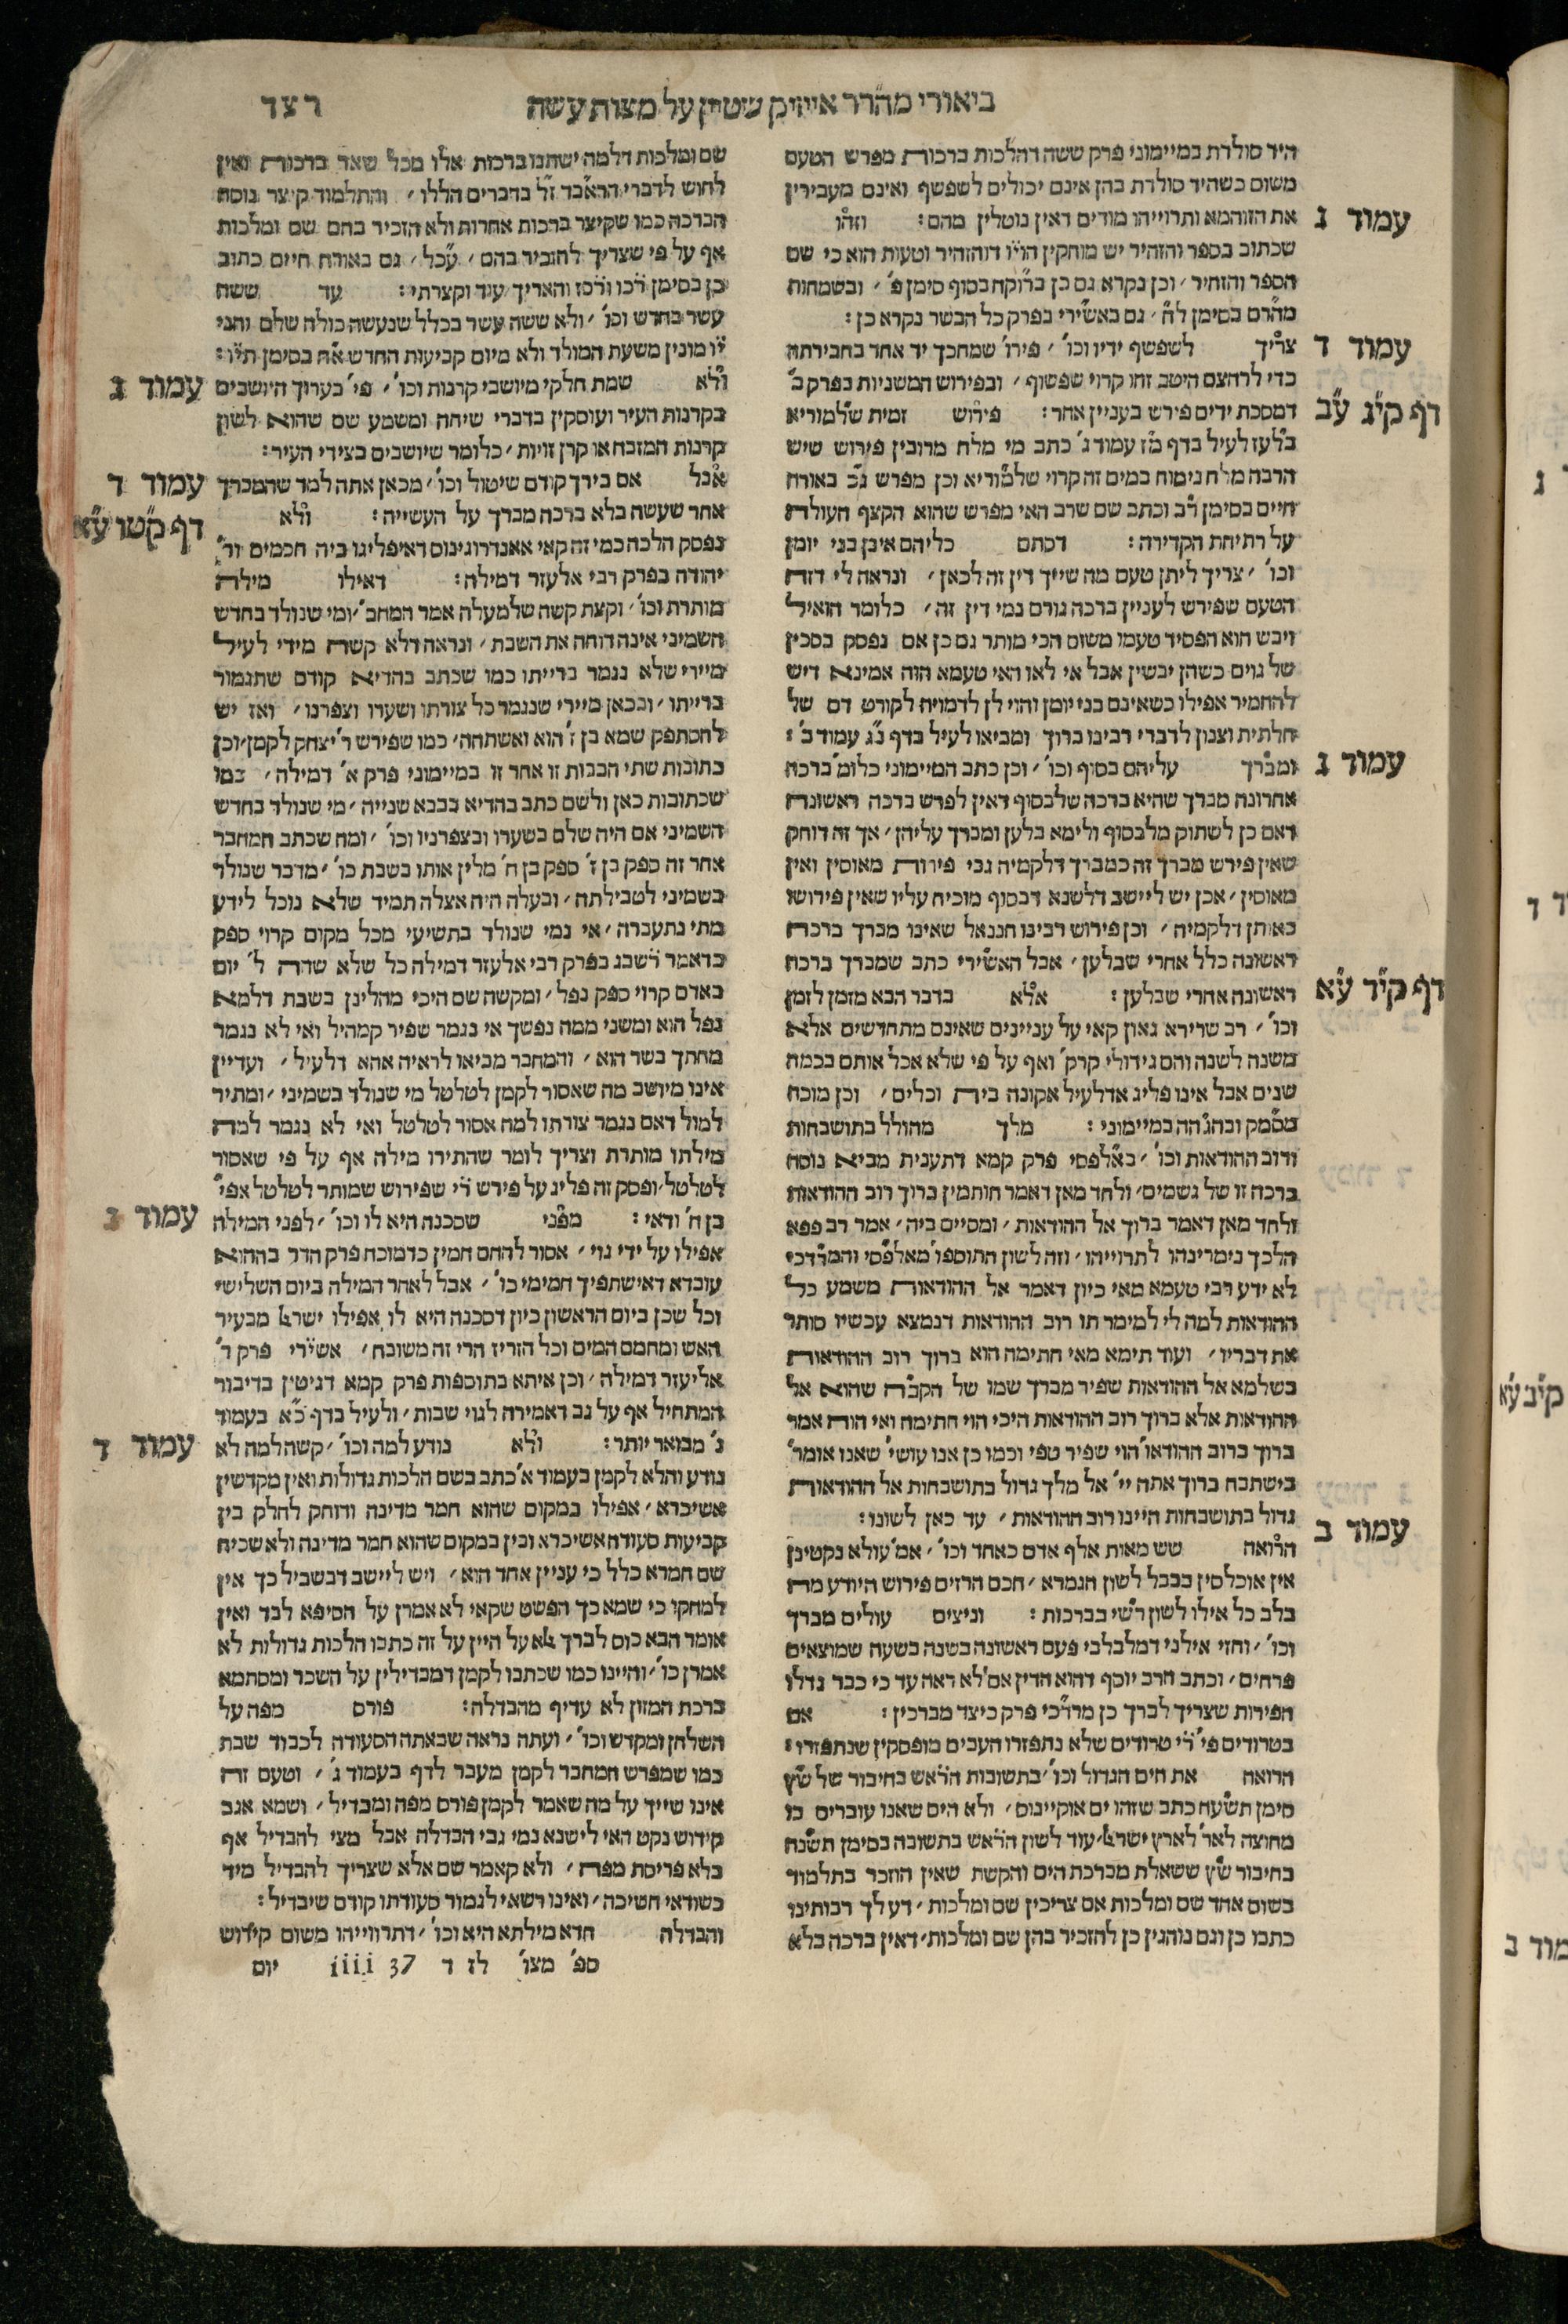 ביאורי מהרר אייזיק שטיין על מצות עשה
רצד
היד סולדת במיימוני פרק ששה דהלכות ברכות מפרש הטעם
משום כשהיד סולדת בהן אינם יכולים לשפשף ואינם מעבירין
את הזוהמא ותרוייהו מודים דאין נוטלין מהם : וזהו
עמוד ג
שכתוב בספר והזהיר יש מוחקין הוי״ו דוהזהיר וטעות הוא כי שם
הספר והזהיר׳ וכן נקרא גם כן ברוקח בסוף סימן פ׳ ׳ ובשמחות
מהר״ם בסימן ל״ה׳ גם באשירי בפרק כל הבשר נקרא כן :
צריך לשפשף ידיו וכו׳ ׳ פירו׳ שמחכך יד אחד בחבירתה
עמוד ד
כדי לרחצם היטב זהו קרוי שפשוף׳ ובפירוש המשניות בפרק ב׳
דמסכת ידים פירש בעניין אחר : פירוש זמית שלמוריא
דף קי״ג ע״ב
בלעז לעיל בדף מ״ז עמוד ג׳ כתב מי מלח מרובין פירוש שיש
הרבה מלח נימוח במים זה קרוי שלמוריא וכן מפרש נ״כ באורח
חיים בסימן ר״ב וכתב שם שרב האי מפרש שהוא הקצף העולה
על רתיחת הקדירה : דסתם כליהם אינן בני יומן
וכו׳ ׳ צריך ליתן טעם מה שייך דין זה לכאן׳ ונראה לי דזה
הטעם שפירש לעניין ברכה גורם נמי דין זה׳ כלומר הואיל
ויבש הוא הפסיד טעמו משום הכי מותר גם כן אם נפסק בסכין
של גוים כשהן יבשין אבל אי לאו האי טעמא הוה אמינא דיש
להחמיר אפילו כשאינם בני יומן והוי לן לדמויה לקורט דם של
חלתית וצנון לדברי רבינו ברוך ומביאו לעיל בדף נ״ג עמוד ב׳ :
ומברך עליהם בסוף וכו׳ ׳ וכן כתב המיימוני כלומ׳ ברכה
עמוד ג
אחרונה מברך שהיא ברכה שלבסוף דאין לפרש ברכה ראשונה
דאם כן לשתוק מלבסוף ולימא בלען ומברך עליהן׳ אך זה דוחק
שאין פירש מברך זה כמברך דלקמיה גבי פירות מאוסין ואין
מאוסין׳ אכן יש ליישב דלשנא דבסוף מוכיח עליו שאין פירושו
כאותן דלקמיה׳ וכן פירוש רבינו חננאל שאינו מברך ברכה
ראשונה כלל אחרי שבלען׳ אבל האשירי כתב שמברך ברכה
ראשונה אחרי שבלען : אלא בדבר הבא מזמן לזמן
דף קי״ד ע״א
וכו׳ ׳ רב שרירא גאון קאי על עניינים שאינם מתחדשים אלא
משנה לשנה והם גידולי קרק׳ ואף על פי שלא אכל אותם בכמה
שנים אבל אינו פליג אדלעיל אקונה בית וכלים׳ וכן מוכח
מסמ״ק ובהגהה במיימוני : מלך מהולל בתושבחות
ורוב ההודאות וכו׳ ׳ באלפסי פרק קמא דתענית מביא נוסח
ברכה זו של גשמים׳ ולחד מאן דאמר חותמין ברוך רוב ההודאות
ולחד מאן דאמר ברוך אל ההודאות׳ ומסיים ביה׳ אמר רב פפא
הלכך נימרינהו לתרוייהו׳ וזה לשון התוספו׳ מאלפסי והמרדכי
לא ידע רבי טעמא מאי כיון דאמר אל ההודאות משמע כל
ההודאות למה לי למימר תו רוב ההודאות דנמצא עכשיו סותר
את דבריו׳ ועוד תימא מאי חתימה הוא ברוך רוב ההודאות
בשלמא אל ההודאות שפיר מברך שמו של הקב״ה שהוא אל
ההודאות אלא ברוך רוב ההודאות היכי הוי חתימה ואי הוה אמר
ברוך ברוב ההודאו׳ הוי שפיר טפי וכמו כן אנו עושי׳ שאנו אומר׳
בישתבח ברוך אתה יי׳ אל מלך גדול בתושבחות אל ההודאות
גדול בתושבחות היינו רוב ההודאות׳ עד כאן לשונו :
הרואה שש מאות אלף אדם כאחד וכו׳ ׳ אמ׳ עולא נקטינן
עמוד ב
אין אוכלסין בבבל לשון הגמרא׳ חכם הרזים פירוש היודע מה
בלב כל אילו לשון רש״י בברכות : וניצים עולים מברך
וכו׳ ׳ וחזי אילני דמלבלבי פעם ראשונה בשנה בשעה שמוצאים
פרחים׳ וכתב הרב יוסף דהוא הדין אם לא ראה עד כי כבר גדלו
הפירות שצריך לברך כן מרדכי פרק כיצד מברכין : אם
בטרודים פי׳ ר״י טרודים שלא נתפזרו העבים מופסקין שנתפזרו :
הרואה את הים הגדול וכו׳ ׳ בתשובות הרא״ש בחיבור של ש״ץ
סימן תשע״ח כתב שזהו ים אוקיינוס׳ ולא הים שאנו עוברים בו
מחוצה לאר׳ לארץ ישראל׳ עוד לשון הרא״ש בתשובה בסימן תשנ״ח
בחיבור ש״ץ ששאלת מברכת הים והקשת שאין הוזכר בתלמוד
בשום אחד שם ומלכות אם צריכין שם ומלכות׳ דע לך רבותינו
כתבו כן וגם נוהגין כן להזכיר בהן שם ומלכות׳ דאין ברכה בלא
שם ומלכות דלמה ישתנו ברכות אלו מכל שאר ברכות ואין
לחוש לדברי הראב״ד ז״ל בדברים הללו׳ והתלמוד קיצר נוסח
הברכה כמו שקיצר ברכות אחרות ולא הזכיר בהם שם ומלכות
אף על פי שצריך להזכיר בהם׳ עכ״ל׳ גם באורח חיים כתוב
כן בסימן רכ״ו ורכ״ז והאריך עוד וקצרתי : עד ששה
עשר בחדש וכו׳ ׳ ולא ששה עשר בכלל שנעשה כולה שלם והני
י״ו מונין משעת המולד ולא מיום קביעות החדש א״ח בסימן תי״ו :
ולא שמת חלקי מיושבי קרנות וכו׳ ׳ פי׳ בערוך היושבים
עמוד ג
בקרנות העיר ועוסקין בדברי שיחה ומשמע שם שהוא לשון
קרנות המזבח או קרן זויות׳ כלומר שיושבים בצידי העיר :
אבל אם בירך קודם שיטול וכו׳ ׳ מכאן אתה למד שהמברך
עמוד ד
אחר שעשה בלא ברכה מברך על העשייה : ולא
דף קט״ו ע״א
נפסק הלכה כמי זה קאי אאנדרוגינוס דאיפליגו ביה חכמים ור׳
יהודה בפרק רבי אלעזר דמילה : דאילו מילה
מותרת וכו׳ ׳ וקצת קשה שלמעלה אמר המחב׳ ׳ ומי שנולד בחדש
השמיני אינה דוחה את השבת׳ ונראה דלא קשה מידי לעיל
מיירי שלא נגמר ברייתו כמו שכתב בהדיא קודם שתגמור
ברייתו׳ ובכאן מיירי שנגמר כל צורתו ושערו וצפרנו׳ ואז יש
להסתפק שמא בן ז׳ הוא ואשתהה׳ כמו שפירש ר׳ יצחק לקמן׳ וכן
כתובות שתי הבבות זו אחר זו במיימוני פרק א׳ דמילה׳ כמו
שכתובות כאן ולשם כתב בהדיא בבבא שנייה׳ מי שנולד בחדש
השמיני אם היה שלם בשערו ובצפרניו וכו׳ ׳ ומה שכתב המחבר
אחר זה ספק בן ז׳ ספק בן ח׳ מלין אותו בשבת כו׳ ׳ מדבר שנולד
בשמיני לטבילתה׳ ובעלה היה אצלה תמיד שלא נוכל לידע
מתי נתעברה׳ אי נמי שנולד בתשיעי מכל מקום קרוי ספק
כדאמר רשב״ג בפרק רבי אלעזר דמילה כל שלא שהה ל׳ יום
באדם קרוי ספק נפל׳ ומקשה שם היכי מהלינן בשבת דלמא
נפל הוא ומשני ממה נפשך אי נגמר שפיר קמהיל ואי לא נגמר
מחתך בשר הוא׳ והמחבר מביאו לראיה אהא דלעיל׳ ועדיין
אינו מיושב מה שאסור לקמן לטלטל מי שנולד בשמיני׳ ומתיר
למול דאם נגמר צורתו למה אסור לטלטל ואי לא נגמר למה
מילתו מותרת וצריך לומר שהתירו מילה אף על פי שאסור
לטלטל׳ ופסק זה פליג על פירש ר״י שפירוש שמותר לטלטל אפי׳
בן ח׳ ודאי : מפני שסכנה היא לו וכו׳ ׳ לפני המילה
עמוד ג
אפילו על ידי גוי׳ אסור להחם חמין כדמוכח פרק הדר בההוא
עובדא דאישתפיך חמימי כו׳ ׳ אבל לאחר המילה ביום השלישי
וכל שכן ביום הראשון כיון דסכנה היא לו אפילו ישראל מבעיר
האש ומחמם המים וכל הזריז הרי זה משובח׳ אשירי פרק ר׳
אליעזר דמילה׳ וכן איתא בתוספות פרק קמא דגיטין בדיבור
המתחיל אף על גב דאמירה לגוי שבות׳ ולעיל בדף כ״א בעמוד
ג׳ מבואר יותר : ולא נודע למה וכו׳ ׳ קשה למה לא
עמוד ד
נודע והלא לקמן בעמוד א׳ כתב בשם הלכות גדולות ואין מקדשין
אשיכרא׳ אפילו במקום שהוא חמר מדינה ודוחק לחלק בין
קביעות סעודה אשיכרא ובין במקום שהוא חמר מדינה ולא שכיח
שם חמרא כלל כי עניין אחד הוא׳ ויש ליישב דבשביל כך אין
למחקו כי שמא כך הפשט שקאי לא אמרן על הסיפא לבד ואין
אומר הבא כוס לברך אלא על היין על זה כתבו הלכות גדולות לא
אמרן כו׳ ׳ והיינו כמו שכתבו לקמן דמבדילין על השכר ומסתמא
ברכת המזון לא עדיף מהבדלה : פורס מפה על
השלחן ומקדש וכו׳ ׳ ועתה נראה שבאתה הסעודה לכבוד שבת
כמו שמפרש המחבר לקמן מעבר לדף בעמוד ג׳ ׳ וטעם זה
אינו שייך על מה שאמר לקמן פורס מפה ומבדיל׳ ושמא אגב
קידוש נקט האי לישנא נמי גבי הבדלה אבל מצי להבדיל אף
בלא פריסת מפה׳ ולא קאמר שם אלא שצריך להבדיל מיד
כשודאי חשיכה׳ ואינו רשאי לגמור סעודתו קודם שיבדיל :
והבדלה חדא מילתא היא וכו׳ ׳ דתרווייהו משום קידוש
ספ׳ מצו׳ לז ד 37 iiii יום